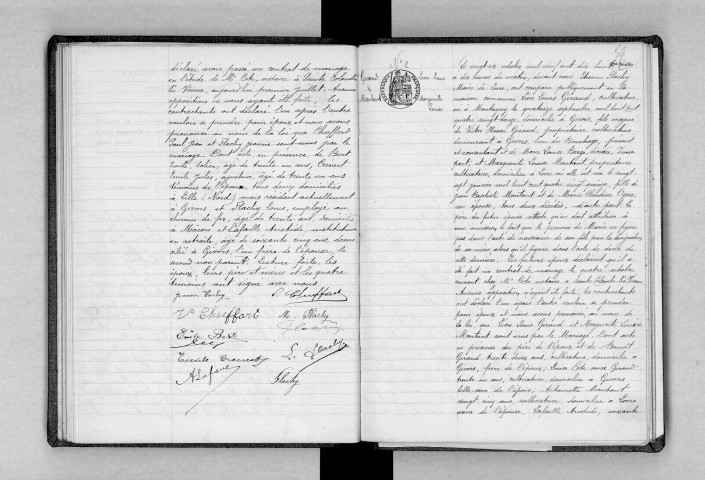 déclaré avoir passé un contrat de mariage
en l'étude de Me Cote, notaire à Sainte Colombe
lès Vienne, aujourd'hui premier Juillet. Aucune
opposition ne nous ayant été faite, les
contractants ont déclaré l'un après l'autre
vouloir se prendre pour époux et nous avons
prononcé au nom de la loi que Cheffort
Paul Jean et Flachy Jeanne sont unis par le
mariage. Dont acte en présence de Bert
Emile, âgé de trente un ans,
Emile Jules, âgé de trente un ans
témoins de l'époux, tous deux domiciliés
à Lille (Nord) mais résidant actuellement
à Givors et Flachy Louis, employé au
chemin de fer, âgé de trente ans, domicilié
à Mâcon et Lafaille Aristide, instituteur
en retraite, âgé de soixante cinq ans, domi
cilié à Givors, l'un frère de l'épouse, le
second non parent. Lecture faite, les
époux, leurs père et mères et les quatre
témoins ont signé avec nous
Jeanne Flachy P. Cheffort
Ve Cheffort M. Flachy
Flachy
Emile Bert
Emile L. Flachy
A Lafaille Flachy
No 2
Giraud
&
Montant
Léon Louis
Marguerite
Louise
Le vingt six octobre mil neuf cent dix huit
à dix heures du matin, devant nous Etienne Flachy
Maire de Loire, ont comparu publiquement en la
maison commune Léon Louis Giraud, cultivateur,
né à Montagny le quatorze septembre mil huit cent
quatre vingt, domicilié à Givors, fils majeur
de Victor Henri Giraud, propriétaire cultivateur
demeurant à Givors, lieu de, présent
et consentant et de Marie Louise, d'une
part; et Marguerite Louise Montant, propriétaire
cultivatrice, domiciliée à Loire où elle est née le vingt
sept janvier mil huit cent quatre vingt, fille de
Jean Baptiste Montant et de Marie
son épouse, tous deux décédés, d'autre part. Le
père du futur époux atteste qu'on doit attribuer à
une omission le fait que le prénom de Marie ne figure
pas dans l'acte de naissance de son fils pour la désignation
de sa mère alors qu'il figure dans l'acte de décès de
cette dernière. Les futurs époux déclarent qu'il a
été fait un contrat de mariage le quatre octobre
courant chez Me Cote notaire à Sainte Colombe
Aucune opposition n'ayant été faite, les contractants
ont déclaré l'un après l'autre vouloir se prendre
pour époux et nous avons prononcé, au nom de
la loi, que Léon Louis Giraud et Marguerite Louise
Montant sont unis par le Mariage. Dont acte
en présence du père de l'époux et de Benoît
Giraud trente deux ans, cultivateur, domicilié à
Givors, frère de l'époux; Louise Cote veuve Giraud
trente un ans, cultivatrice, domiciliée à Givors
belle sœur de l'époux; Antoinette Montant
vingt cinq ans, cultivatrice, domiciliée à Loire
sœur de l'épouse, Lafaille Aristide, soixante